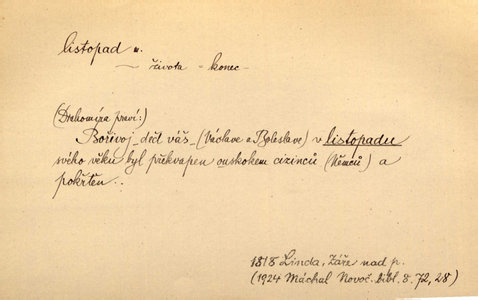 listopad m.
~ života = konec
(Drahomíra praví:)
Bořivoj - děd váš - (Václave a Boleslave) v listopadu
svého věku byl překvapen ouskokem cizinců (Němců) a
pokřtěn..
1818 Linda, Záře nad p.
(1924 Máchal Novoč. bibl. 8. 72, 28)